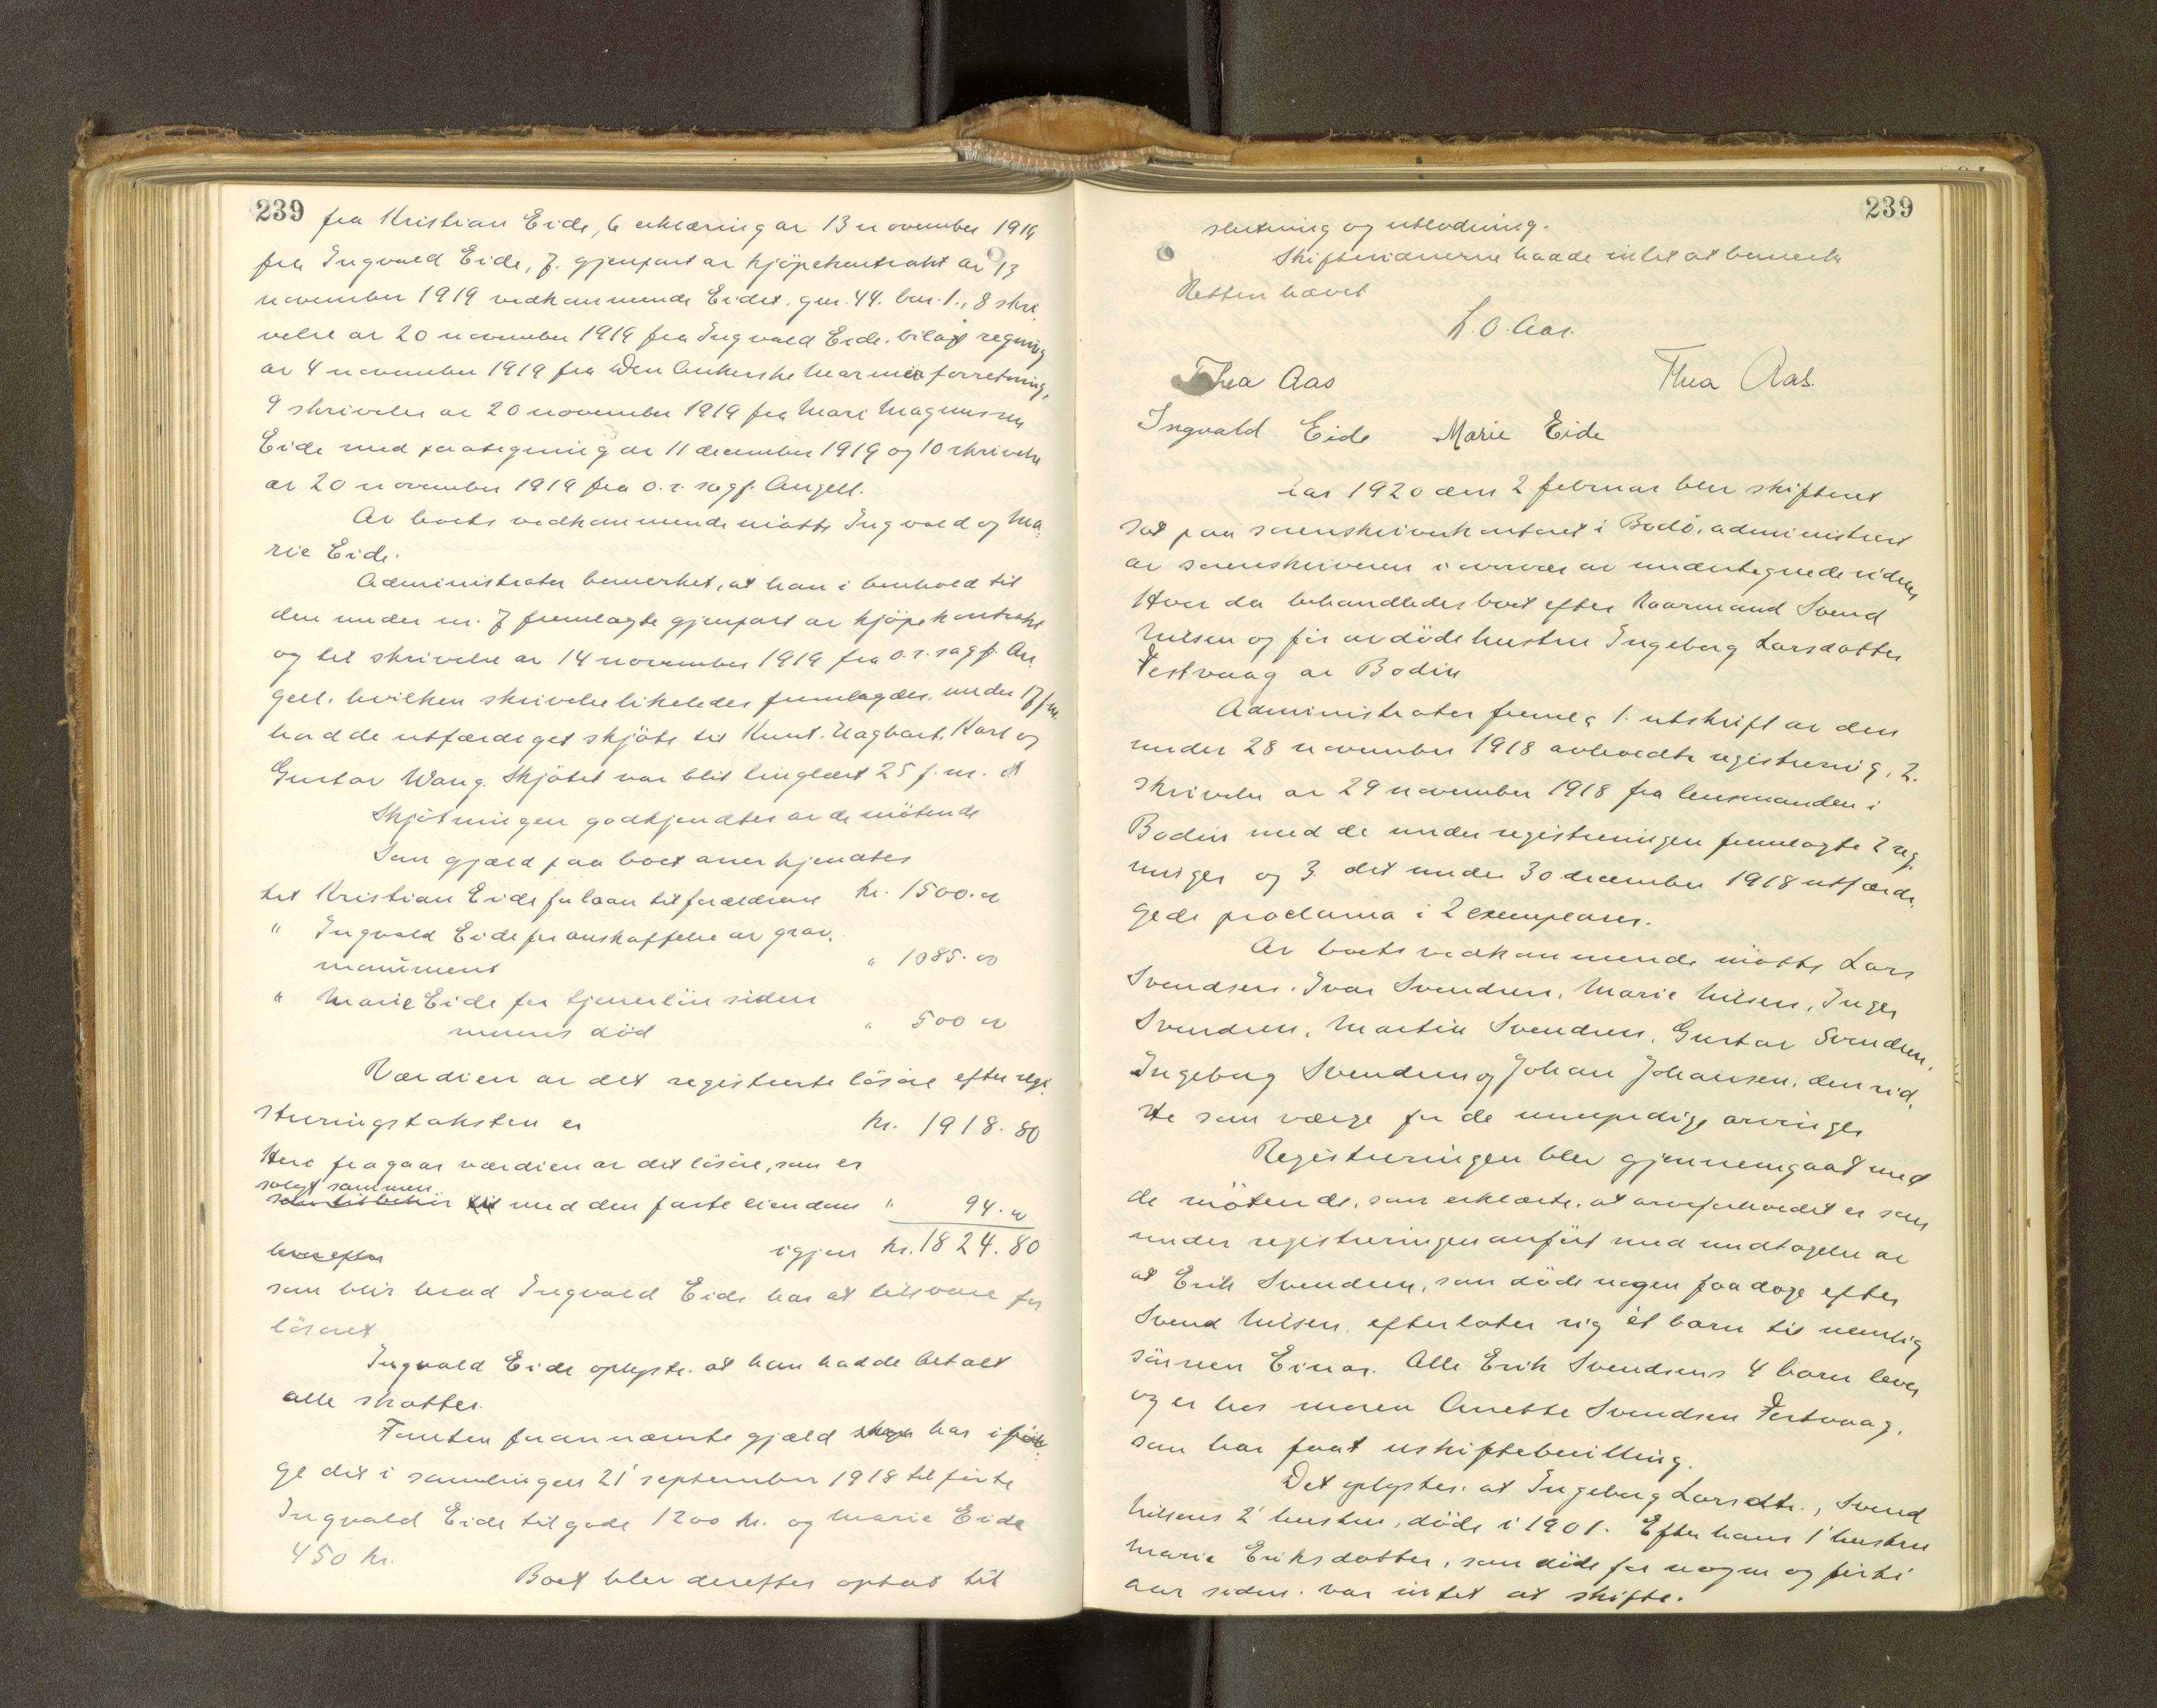 239
fra Kristian Eide, 6 erklæring av 13 november 1919
fra Ingvald Eide, 7. gjenpart av kjöpekontrakt av 13
november 1919 vedkommende Eidet. gnr. 44. bnr. 1., 8 skri
velse av 20 november 1919 fra Ingvald Eide. bilagt regning
av 4 november 1919 fra Den Ankerske Marmorforretning,
9 skrivelse av 20 november 1919 fra Mari Magnussen
Eide med paategning av 11 december 1919 og 10 skrivelse
av 20 november 1919 fra o.r. sagf. Angell.
Av boets vedkommende mötte Ingvald og Ma
rie Eide.
Administrator bemerket, at han i henhold til
den under nr. 7 fremlagte gjenpart av kjöpekontrakt
og til skrivelse av 14 november 1919 fra o.r. sagf. An
gell. hvilken skrivelse likeledes fremlagdes. under 17/
hadde utfærdiget skjöte til Knut. Hagbart. Karl og
Gustav Wang. Skjötet var blit tinglæst 25 f.m.
Skjötningen godkjendtes av de mötende
Som gjæld paa boet anerkjendtes
til Kristian Eide for laan til forældrene kr. 1500.00
" Ingvald Eide for anskaffelse av grav.
monument " 1085.00
" Marie Eide for tjenerlön siden
morens död " 500 00
Værdien av det registrerte lösöre efter regi
streringstaksten er kr. 1918.80
Herav fragaar værdien av det lösöre, som er
solgt sammen
som tilbehör til med den faste eiendom " 94.00
herefter igjen kr. 1824.80
som blir hvad Ingvald Eide har at tilsvare for
lösöret
Ingvald Eide oplyste. at han hadde betalt
alle skatter.
Foruten forannævnte gjæld har i föl
ge det i samlingen 21' september 1918 tilförte
Ingvald Eide tilgode 1200 kr. og Marie Eide
450 kr.
Boet blev derefter optat til
239
slutning og utlodning.
Skiftevidnerne hadde intet at bemerke
Retten hævet
L.O. Aas.
Thea Aas Thea Aas.
Ingvald Eide Marie Eide
Aar 1920 den 2 februar blev skifteret
sat paa sorenskriverkontoret i Bodö, administrert
av sorenskriveren i overvær av undertegnede vidner
Hvor da behandledes boet efter Kaarmand Svend
Nilsen og för avdöde hustru Ingeborg Larsdatter
Festvaag av Bodin
Administrator fremla 1. utskrift av den
under 28 november 1918 avholdte registrering, 2.
skrivelse av 29 november 1918 fra lensmanden i
Bodin med de under registreringen fremlagte 2 reg
ninger og 3. det under 30 december 1918 utfærdi
gede proclama i 2 exemplarer.
Av boets vedkommende mötte Lars
Svendsen. Ivar Svendsen, Marie Nilsen, Inger
Svendsen, Martin Svendsen, Gustav Svendsen,
Ingeborg Svendsen og Johan Johansen, den sid,
ste som værge for de umyndige arvinger
Registreringen blev gjennemgaat med
de mötende, som erklærte, at arveforholdet er som
under registreringen anfört med undtagelse av
at Erik Svendsen, som döde nogen faa dage efter
Svend Nilsen, efterlater sig ét barn til nemlig
sönnen Einar. Alle Erik Svendsens 4 barn lever
og er hos moren Anette Svendsen Festvaag,
som har faat uskiftebevilling.
Det oplystes. at Ingeborg Larsdtr., Svend
Nilsens 2' hustru, döde i 1901. Efter hans 1' hustru
Marie Eriksdatter, som döde for nogen og firti
aar siden. var intet at skifte.